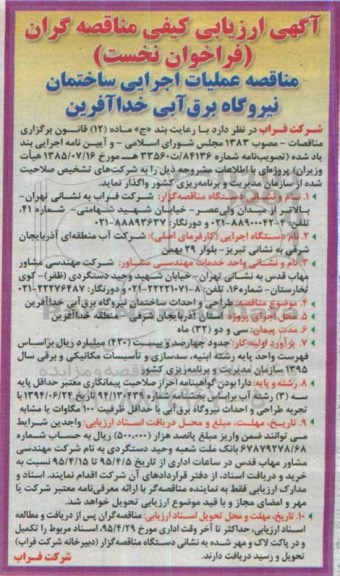 آگهی ارزیابی کیفی مناقصه گران
(فراخوان نخست)
مناقصه عملیات اجرایی ساختمان
نیروگاه برق‌آبی خداآفرین
شرکت فراب در نظر دارد با رعایت بند «ج» ماده (۱۲) قانون برگزاری
مناقصات - مصوب ۱۳۸۳ مجلس شورای اسلامی - و آیین نامه اجرایی بند
یاد شده (تصویب‌نامه شماره ۸۴۱۳۶/ت۳۳۵۶۰هـ مورخ ۱۳۸۵/۰۷/۱۶ هیأت
وزیران) پروژه‌ای با اطلاعات مشروحه ذیل را به شرکت‌های تشخیص صلاحیت
شده از سازمان مدیریت و برنامه‌ریزی کشور واگذار نماید.
۱. نام و نشانی دستگاه مناقصه‌گزار: شرکت فراب به نشانی تهران-
بالاتر از میدان ولی‌عصر- خیابان شهید شهامتی- شماره ۴۱،
تلفن: ۴-۸۸۹۰۰۰۴۲-۰۲۱ و دورنگار: ۸۸۸۹۳۶۳۷-۰۲۱
۲. نام دستگاه اجرایی (کارفرمای اصلی): شرکت آب منطقه‌ای آذربایجان
شرقی به نشانی تبریز- بلوار ۲۹ بهمن
۳. نام و نشانی واحد خدمات مهندسی مشاور: شرکت مهندسی مشاور
مهاب قدس به نشانی تهران- خیابان شهید وحید دستگردی (ظفر)- کوی
تخارستان- شماره۱۶، تلفن: ۸-۲۲۲۲۱۰۷۱-۰۲۱ و دورنگار: ۲۲۲۷۶۴۸۷-۰۲۱
۴. موضوع مناقصه: طراحی و احداث ساختمان نیروگاه برق‌آبی خداآفرین
۵. محل اجرای پروژه: استان آذربایجان شرقی- منطقه خداآفرین
۶. مدت پیمان: سی و دو (۳۲) ماه
۷. برآورد اولیه کار: حدود چهارصد و بیست (۴۲۰) میلیارد ریال براساس
فهرست واحد پایه رشته ابنیه، سدسازی و تأسیسات مکانیکی و برقی سال
۱۳۹۵ سازمان مدیریت و برنامه‌ریزی کشور
۸. رشته و پایه: دارا بودن گواهینامه احراز صلاحیت پیمانکاری معتبر حداقل پایه
سه (۳) رشته آب براساس بخشنامه شماره ۹۴/۱۳۰۴۳۹ تاریخ ۱۳۹۴/۰۶/۲۴ با
تجربه طراحی و احداث نیروگاه برق‌آبی با حداقل ظرفیت ۱۰۰ مگاوات یا مشابه
۹. تاریخ، مهلت، مبلغ و محل دریافت اسناد ارزیابی: واجدین شرایط
می توانند ضمن واریز مبلغ پانصد هزار (۵۰۰,۰۰۰) ریال به حساب شماره
۶۷۸۷۹۲۷۸/۶۸ بانک ملت شعبه وحید دستگردی به نام شرکت مهندسی
مشاور مهاب قدس در ساعات اداری از تاریخ ۹۵/۴/۵ تا ۹۵/۴/۱۵ نسبت به
خرید و دریافت اسناد، از دفتر قراردادهای آن شرکت اقدام نمایند. اسناد و
مدارک ارزیابی فقط به نماینده مناقصه‌گر با ارائه معرفی‌نامه معتبر شرکت با
مهر و امضای مجاز و با قید موضوع ارزیابی تحویل خواهد شد.
۱۰. تاریخ، مهلت و محل تحویل اسناد ارزیابی: مناقصه‌گران پس از دریافت و مطالعه
اسناد ارزیابی، حداکثر تا آخر وقت اداری مورخ ۹۵/۴/۲۹، اسناد مربوط را تکمیل
و در پاکت لاک و مهر شده به نشانی دستگاه مناقصه‌گزار (دبیرخانه شرکت فراب)
تحویل و رسید دریافت دارند.
شرکت فراب